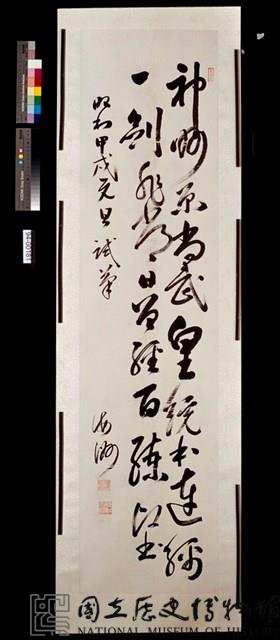 神州原尚武皇統本連綿
一劍非常日曾經百鍊
昭和甲戌元旦試筆
海洲
94-00181
國立歷史博物館
NATIONAL MUSEUM OF HI